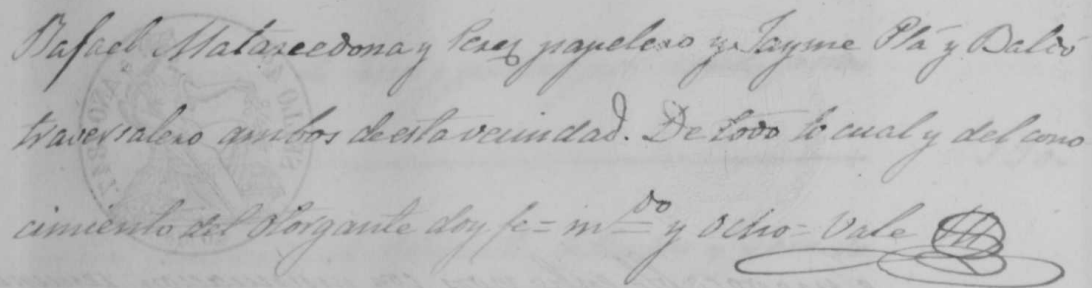 Rafael Matarredona y Perez papelero y Jayme Plá y Baldó
traversalero ambos de esta vecindad. De todo lo cual y del cono
cimiento del Otorgante doy fe = m do y ocho = Vale